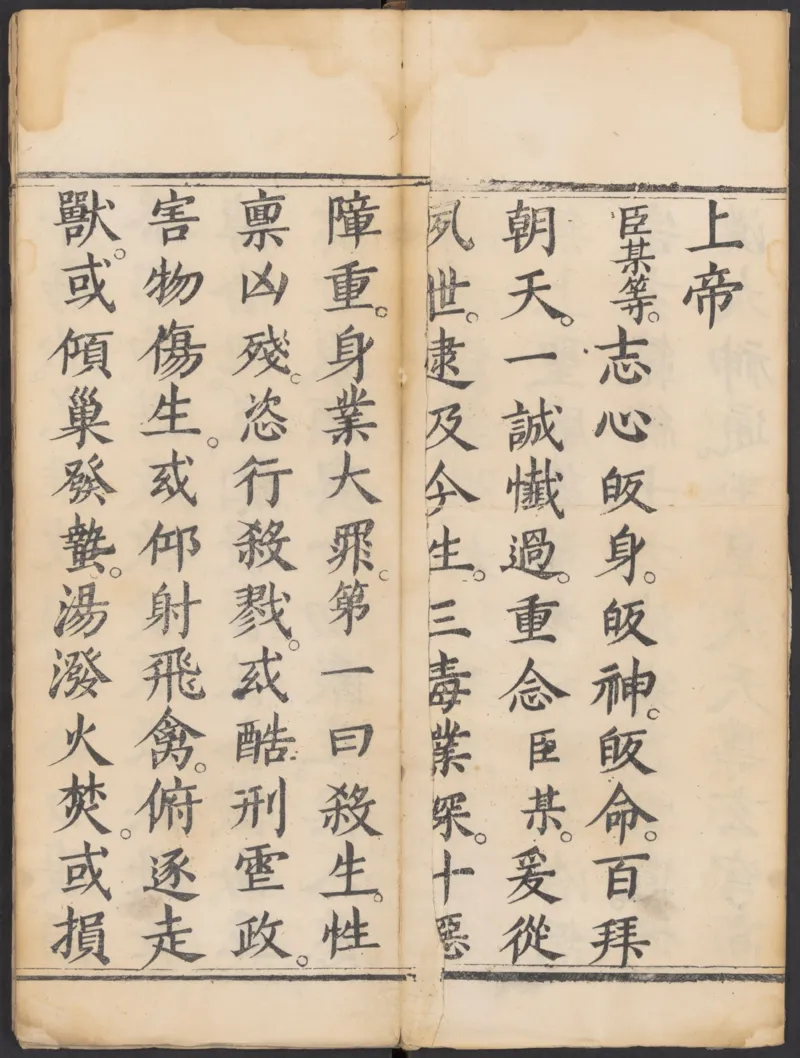 上帝
臣某等。志心皈身。皈神。皈命。百拜
朝天。一誠懴過。重念臣某。爰從
夙世。逮及今生。三毒業深。十惡
障重。身業大罪。第一曰殺生。性
禀凶殘。恣行殺戮。或酷刑虐政。
害物傷生。或仰射飛禽。俯逐走
獸。或傾巢發蟄。湯潑火焚。或損